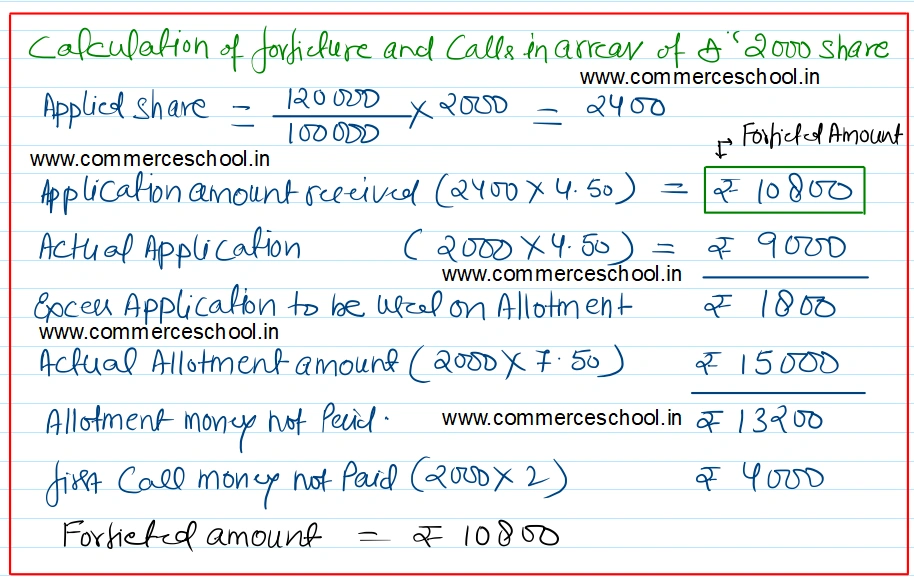 Calculation of forfieture and Calls in arrear of A's 2000 share
www.commerceschool.in
Applied share = 120000/100000 × 2000 = 2400
Forfieted Amount
www.commerceschool.in
Application amount received (2400 × 4.50) = ₹ 10800
Actual Application (2000 × 4.50) = ₹ 9000
www.commerceschool.in
Excess Application to be used on Allotment ₹ 1800
www.commerceschool.in
Actual Allotment amount (2000 × 7.50) ₹ 15000
Allotment money not Paid. www.commerceschool.in ₹ 13200
first Call money not Paid (2000 × 2) ₹ 4000
Forfieted amount = ₹ 10800